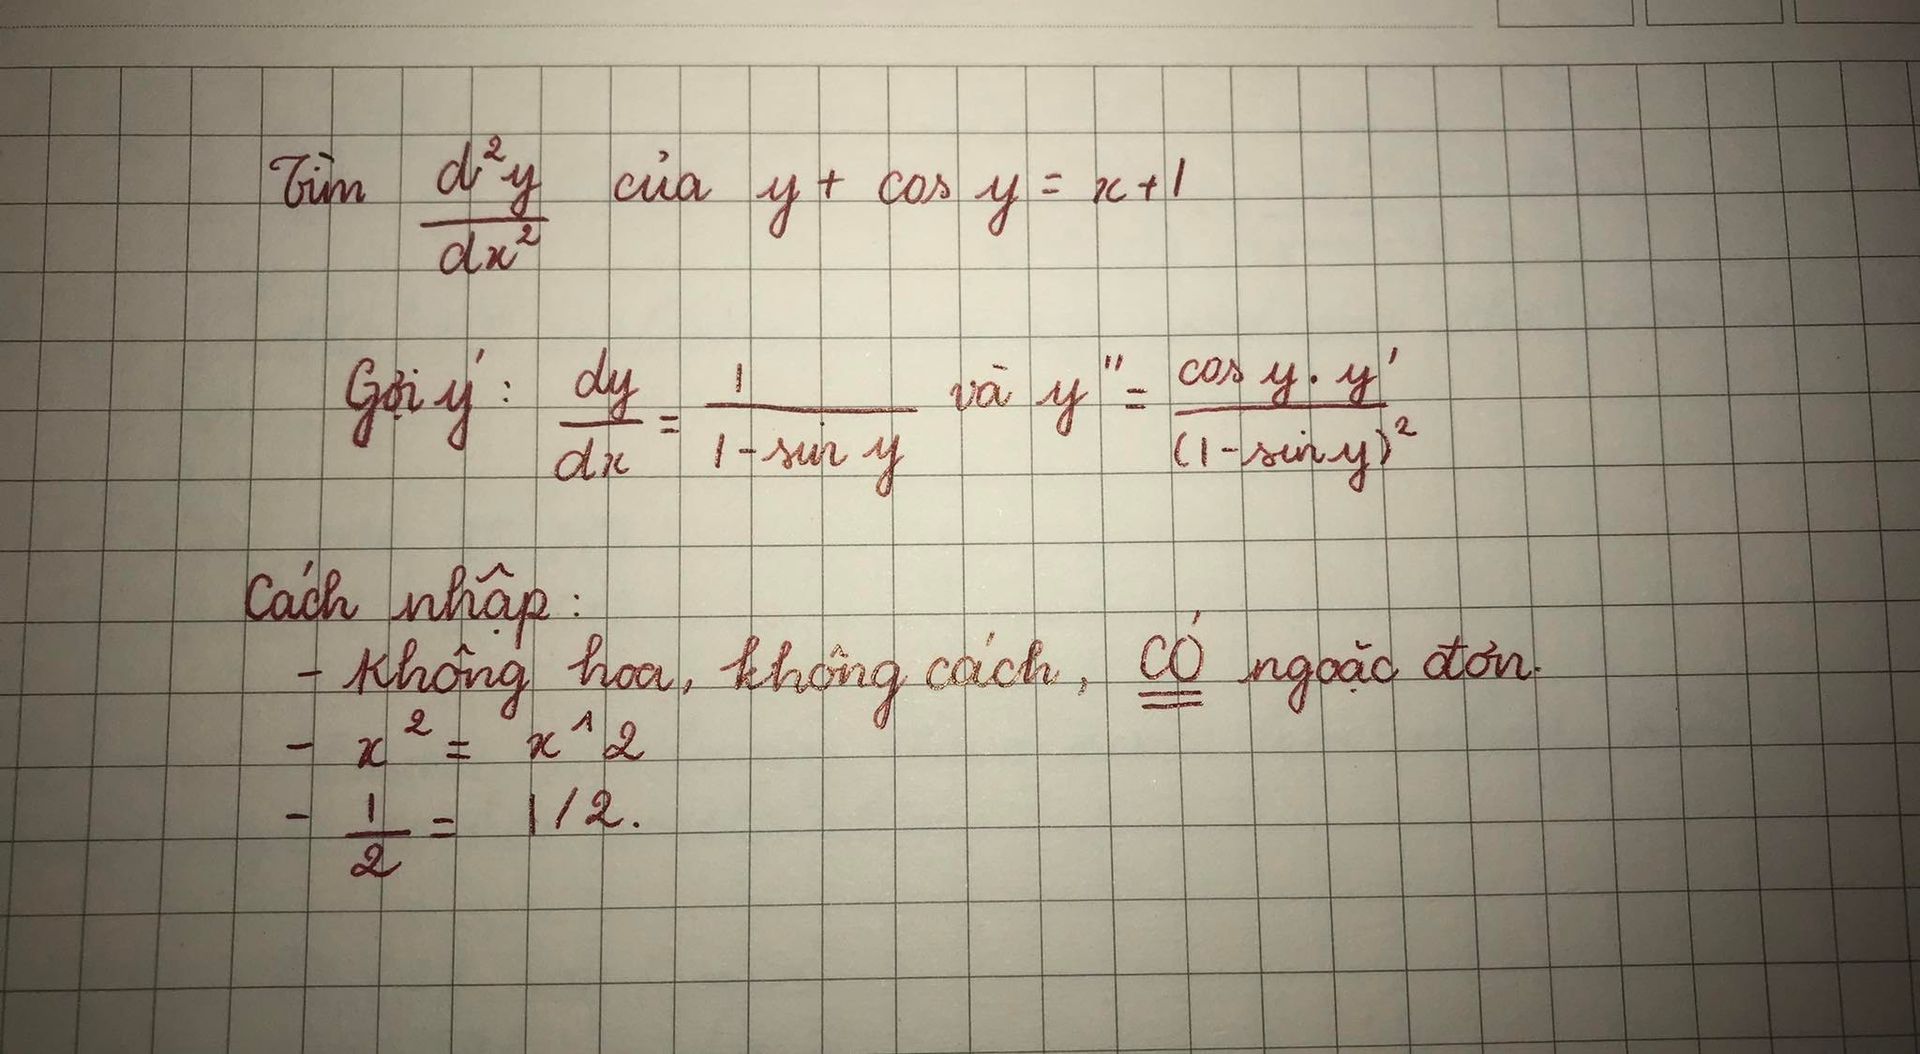 Tìm d²y/dx² của y + cos y = x + 1
Gợi ý: dy/dx = 1/(1 - sin y) và y" = cos y . y'/(1 - sin y)²
Cách nhập:
- Không hoa, không cách, CÓ ngoặc đơn.
- x² = x^2
- 1/2 = 1/2.